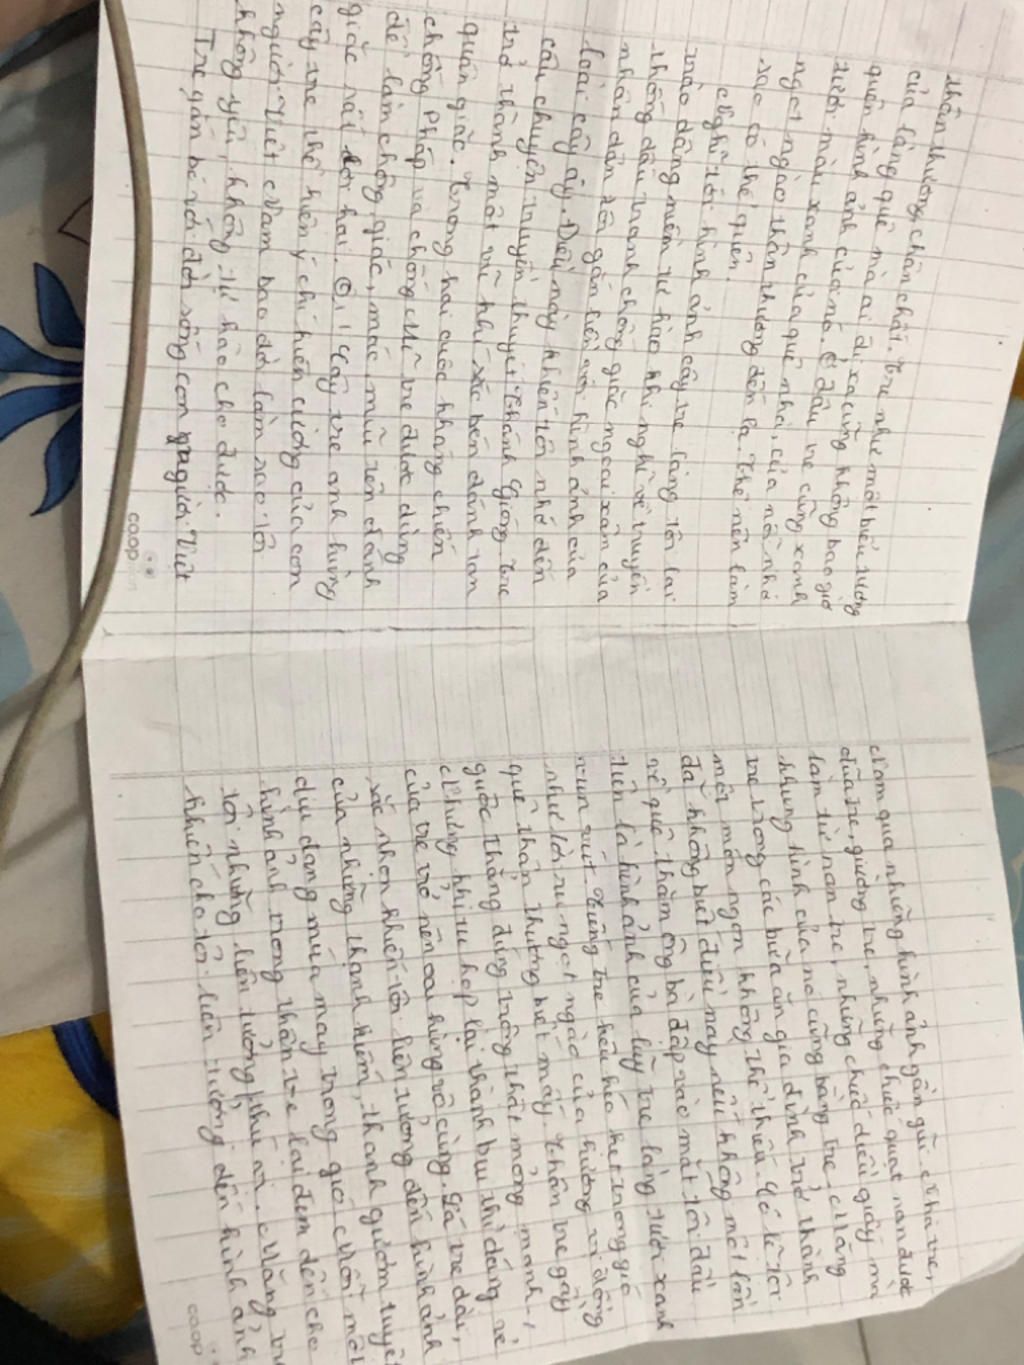 thân thương, chân chất. Tre như một biểu tượng
của làng quê mà ai đi xa cũng không bao giờ
quên hình ảnh của nó. Ở đâu tre cũng xanh
tươi màu xanh của quê nhà, của nỗi nhớ
ngọt ngào thân thương đến lạ. Thế nên làm
sao có thể quên.
Nghĩ tới hình ảnh cây tre lòng tôi lại
trào dâng niềm tự hào khi nghĩ về truyền
thống đấu tranh chống giặc ngoại xâm của
nhân dân ta gắn liền với hình ảnh của
loài cây ấy. Điều này khiến tôi nhớ đến
câu chuyện truyền thuyết Thánh Gióng tre
trở thành một vũ khí sắc bén đánh tan
quân giặc. Trong hai cuộc kháng chiến
chống Pháp và chống Mĩ tre được dùng
để làm chông giặc, mác, mũi tên đánh
giặc rất lợi hại. Ôi! Cây tre anh hùng
cây tre thể hiện ý chí kiên cường của con
người Việt Nam bao đời làm sao tôi
không yêu, không tự hào cho được.
Tre gắn bó với đời sống con người Việt
co.op
Nam qua những hình ảnh gần gũi. Nhà tre,
đũa tre, giường tre, những chiếc quạt nan được
làm từ nan tre, những chiếc diều giấy mà
khung hình của nó cũng bằng tre. Măng
tre trong các bữa ăn gia đình trở thành
một món ngon không thể thiếu. Có lẽ tôi
đã không biết điều này nếu không một lần
về quê thăm ông bà đập vào mắt tôi đầu
tiên là hình ảnh của lũy tre làng tươi xanh
vun vút. Tiếng tre kẽu kẽo kẹt trong gió
như lời ru ngọt ngào của hương vị đồng
quê thân thương biết mấy. Thân tre gầy
guộc thẳng đứng trông thật mỏng manh
Nhưng khi tụ họp lại thành bụi thì dáng vẻ
của tre trở nên oai hùng vô cùng. Lá tre dài,
sắc nhọn khiến tôi liên tưởng đến hình ảnh
của những thanh kiếm, thanh gươm tuyệt
dịu dàng múa may trong gió. Mỗi một
hình ảnh trong thân tre lại đem đến cho
tôi những liên tưởng thú vị. Măng tre
khiến cho tôi liên tưởng đến hình ảnh
co.op